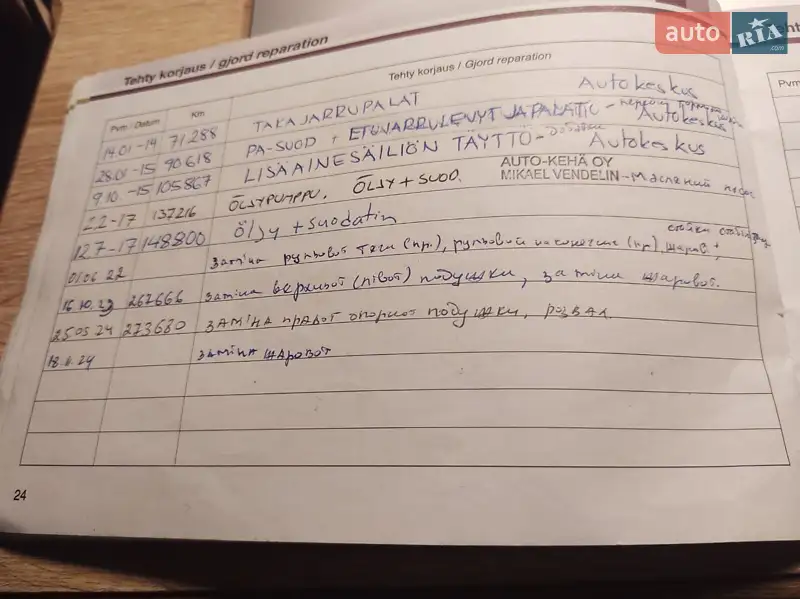 auto RIA.com
Tehty korjaus / gjord reparation
Tehty korjaus / Gjord reparation
Pvm / Datum
Km
Pvm
14.01-14 71.288 TAKAJARRUPALAT Autokeskus
28.01-15 90618 PA-SUOD + ETUJARRULEVYT JA PALAT Autokeskus
9.10.-15 105867 LISÄAINESÄILIÖN TÄYTTÖ- Autokeskus
2.2-17 137216 ÖLJYPUMPPU, ÖLJY + SUOD. AUTO-KEHÄ OY
MIKAEL VENDELIN - Масляний
12.7-17 148800 Öljy + suodatin
стойки
01.06 22 заміна рульвої тяги (пр.), рульвой наконечник (пр), шаров.
16.10.23 267666 заміна верхньої (лівої) подушки, заміни шарової.
25.05.24 273680 ЗАМІНА правої опорної подушки, розвал.
18.11.24 заміна шарової
24